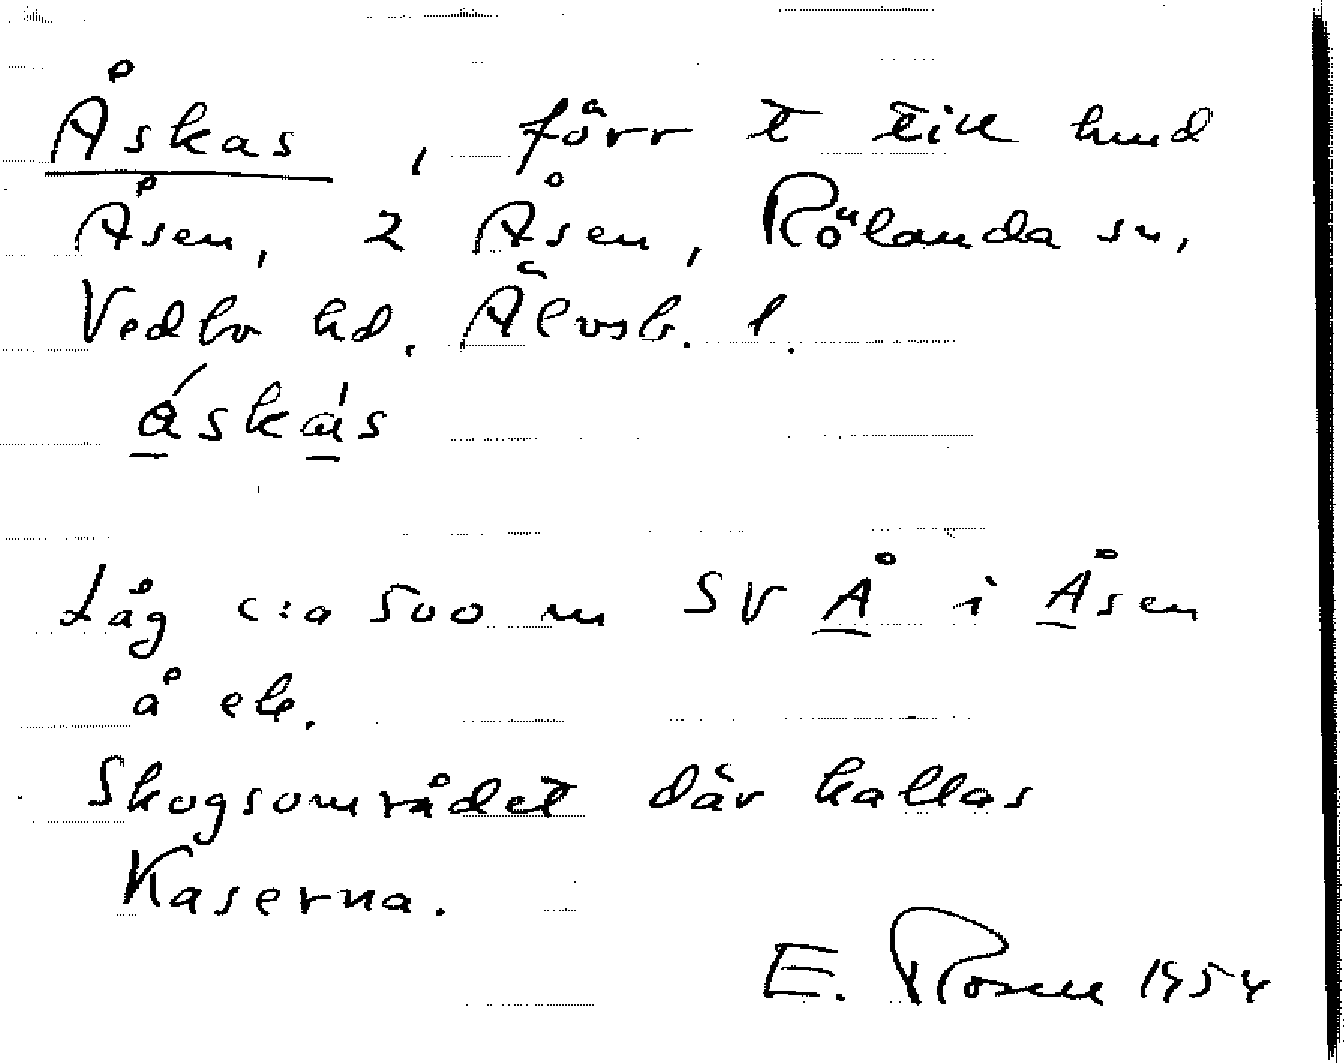 Åskas, förr t till hmd
Åsen, 2 Åsen, Rölanda sn,
Vedbo hd. Älvsb. l.
áskàs
Låg c:a 500 m SV Å i Åsen
å ek.
Skogsområdet där kallas
Kaserna.
E. Rosell 1954